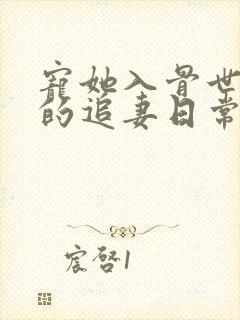 宠她入骨世
的追妻日常
宸啓1